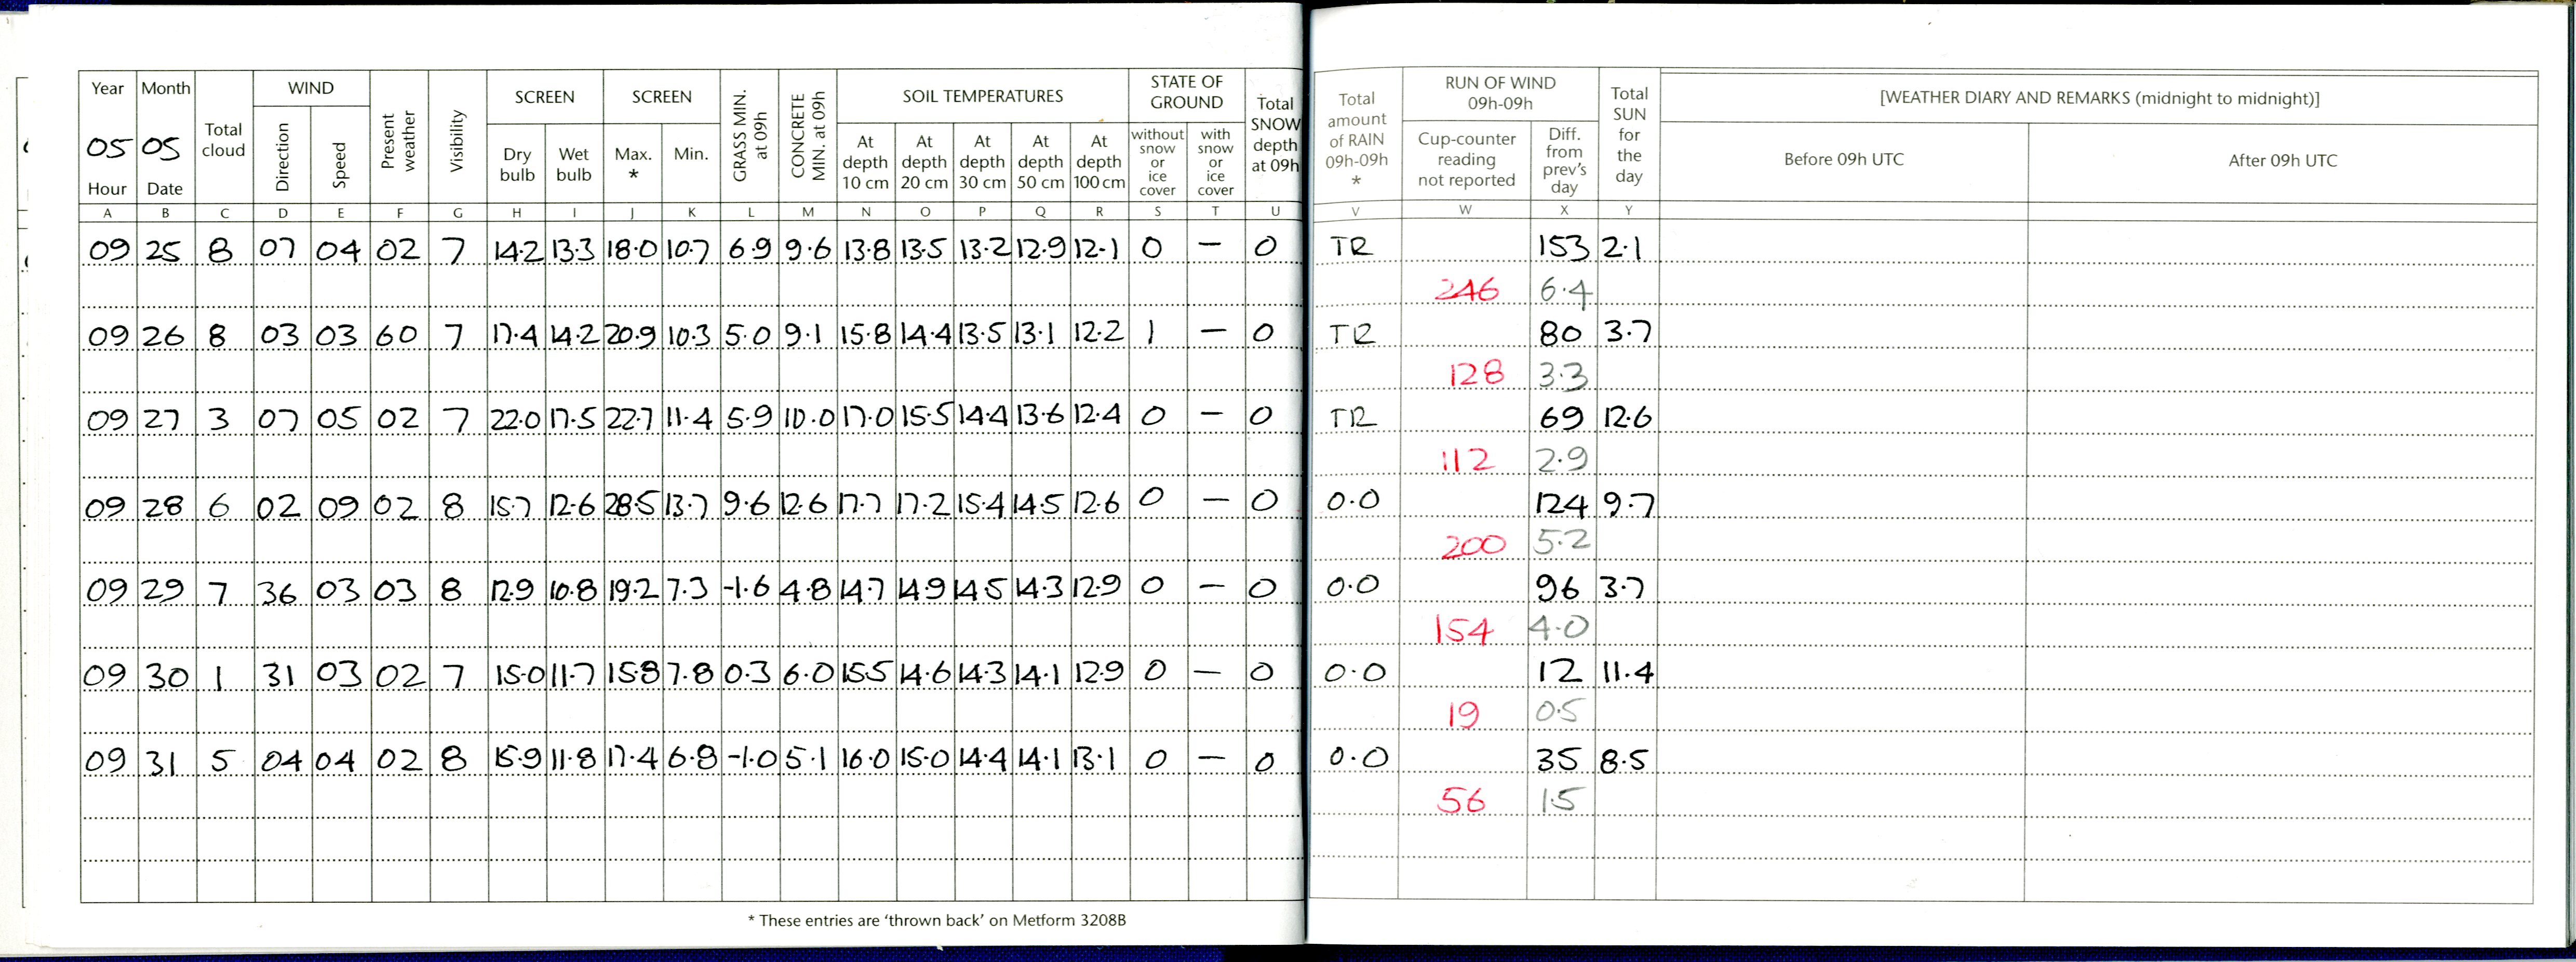 Year Month Total cloud WIND Present weather Visibility SCREEN SCREEN GRASS MIN. at 09h CONCRETE MIN. at 09h SOIL TEMPERATURES STATE OF GROUND Total SNOW depth at 09h Total amount of RAIN 09h-09h * RUN OF WIND 09h-09h Total SUN for the day [WEATHER DIARY AND REMARKS (midnight to midnight)]
05 05 Direction Speed Dry bulb Wet bulb Max. * Min. At depth 10 cm At depth 20 cm At depth 30 cm At depth 50 cm At depth 100 cm without snow or ice cover with snow or ice cover Cup-counter reading not reported Diff. from prev's day Before 09h UTC After 09h UTC
Hour Date
A B C D E F G H I J K L M N O P Q R S T U V W X Y
09 25 8 07 04 02 7 14.2 13.3 18.0 10.7 6.9 9.6 13.8 13.5 13.2 12.9 12.1 0 – 0 TR 153 2.1
246 6.4
09 26 8 03 03 60 7 17.4 14.2 20.9 10.3 5.0 9.1 15.8 14.4 13.5 13.1 12.2 1 – 0 TR 80 3.7
128 3.3
09 27 3 07 05 02 7 22.0 17.5 22.7 11.4 5.9 10.0 17.0 15.5 14.4 13.6 12.4 0 – 0 TR 69 12.6
112 2.9
09 28 6 02 09 02 8 15.7 12.6 28.5 13.7 9.6 12.6 17.7 17.2 15.4 14.5 12.6 0 – 0 0.0 124 9.7
200 5.2
09 29 7 36 03 03 8 12.9 10.8 19.2 7.3 -1.6 4.8 14.7 14.9 14.5 14.3 12.9 0 – 0 0.0 96 3.7
154 4.0
09 30 1 31 03 02 7 15.0 11.7 15.8 7.8 0.3 6.0 15.5 14.6 14.3 14.1 12.9 0 – 0 0.0 12 11.4
19 0.5
09 31 5 04 04 02 8 15.9 11.8 17.4 6.8 -1.0 5.1 16.0 15.0 14.4 14.1 13.1 0 – 0 0.0 35 8.5
56 1.5
* These entries are ‘thrown back’ on Metform 3208B